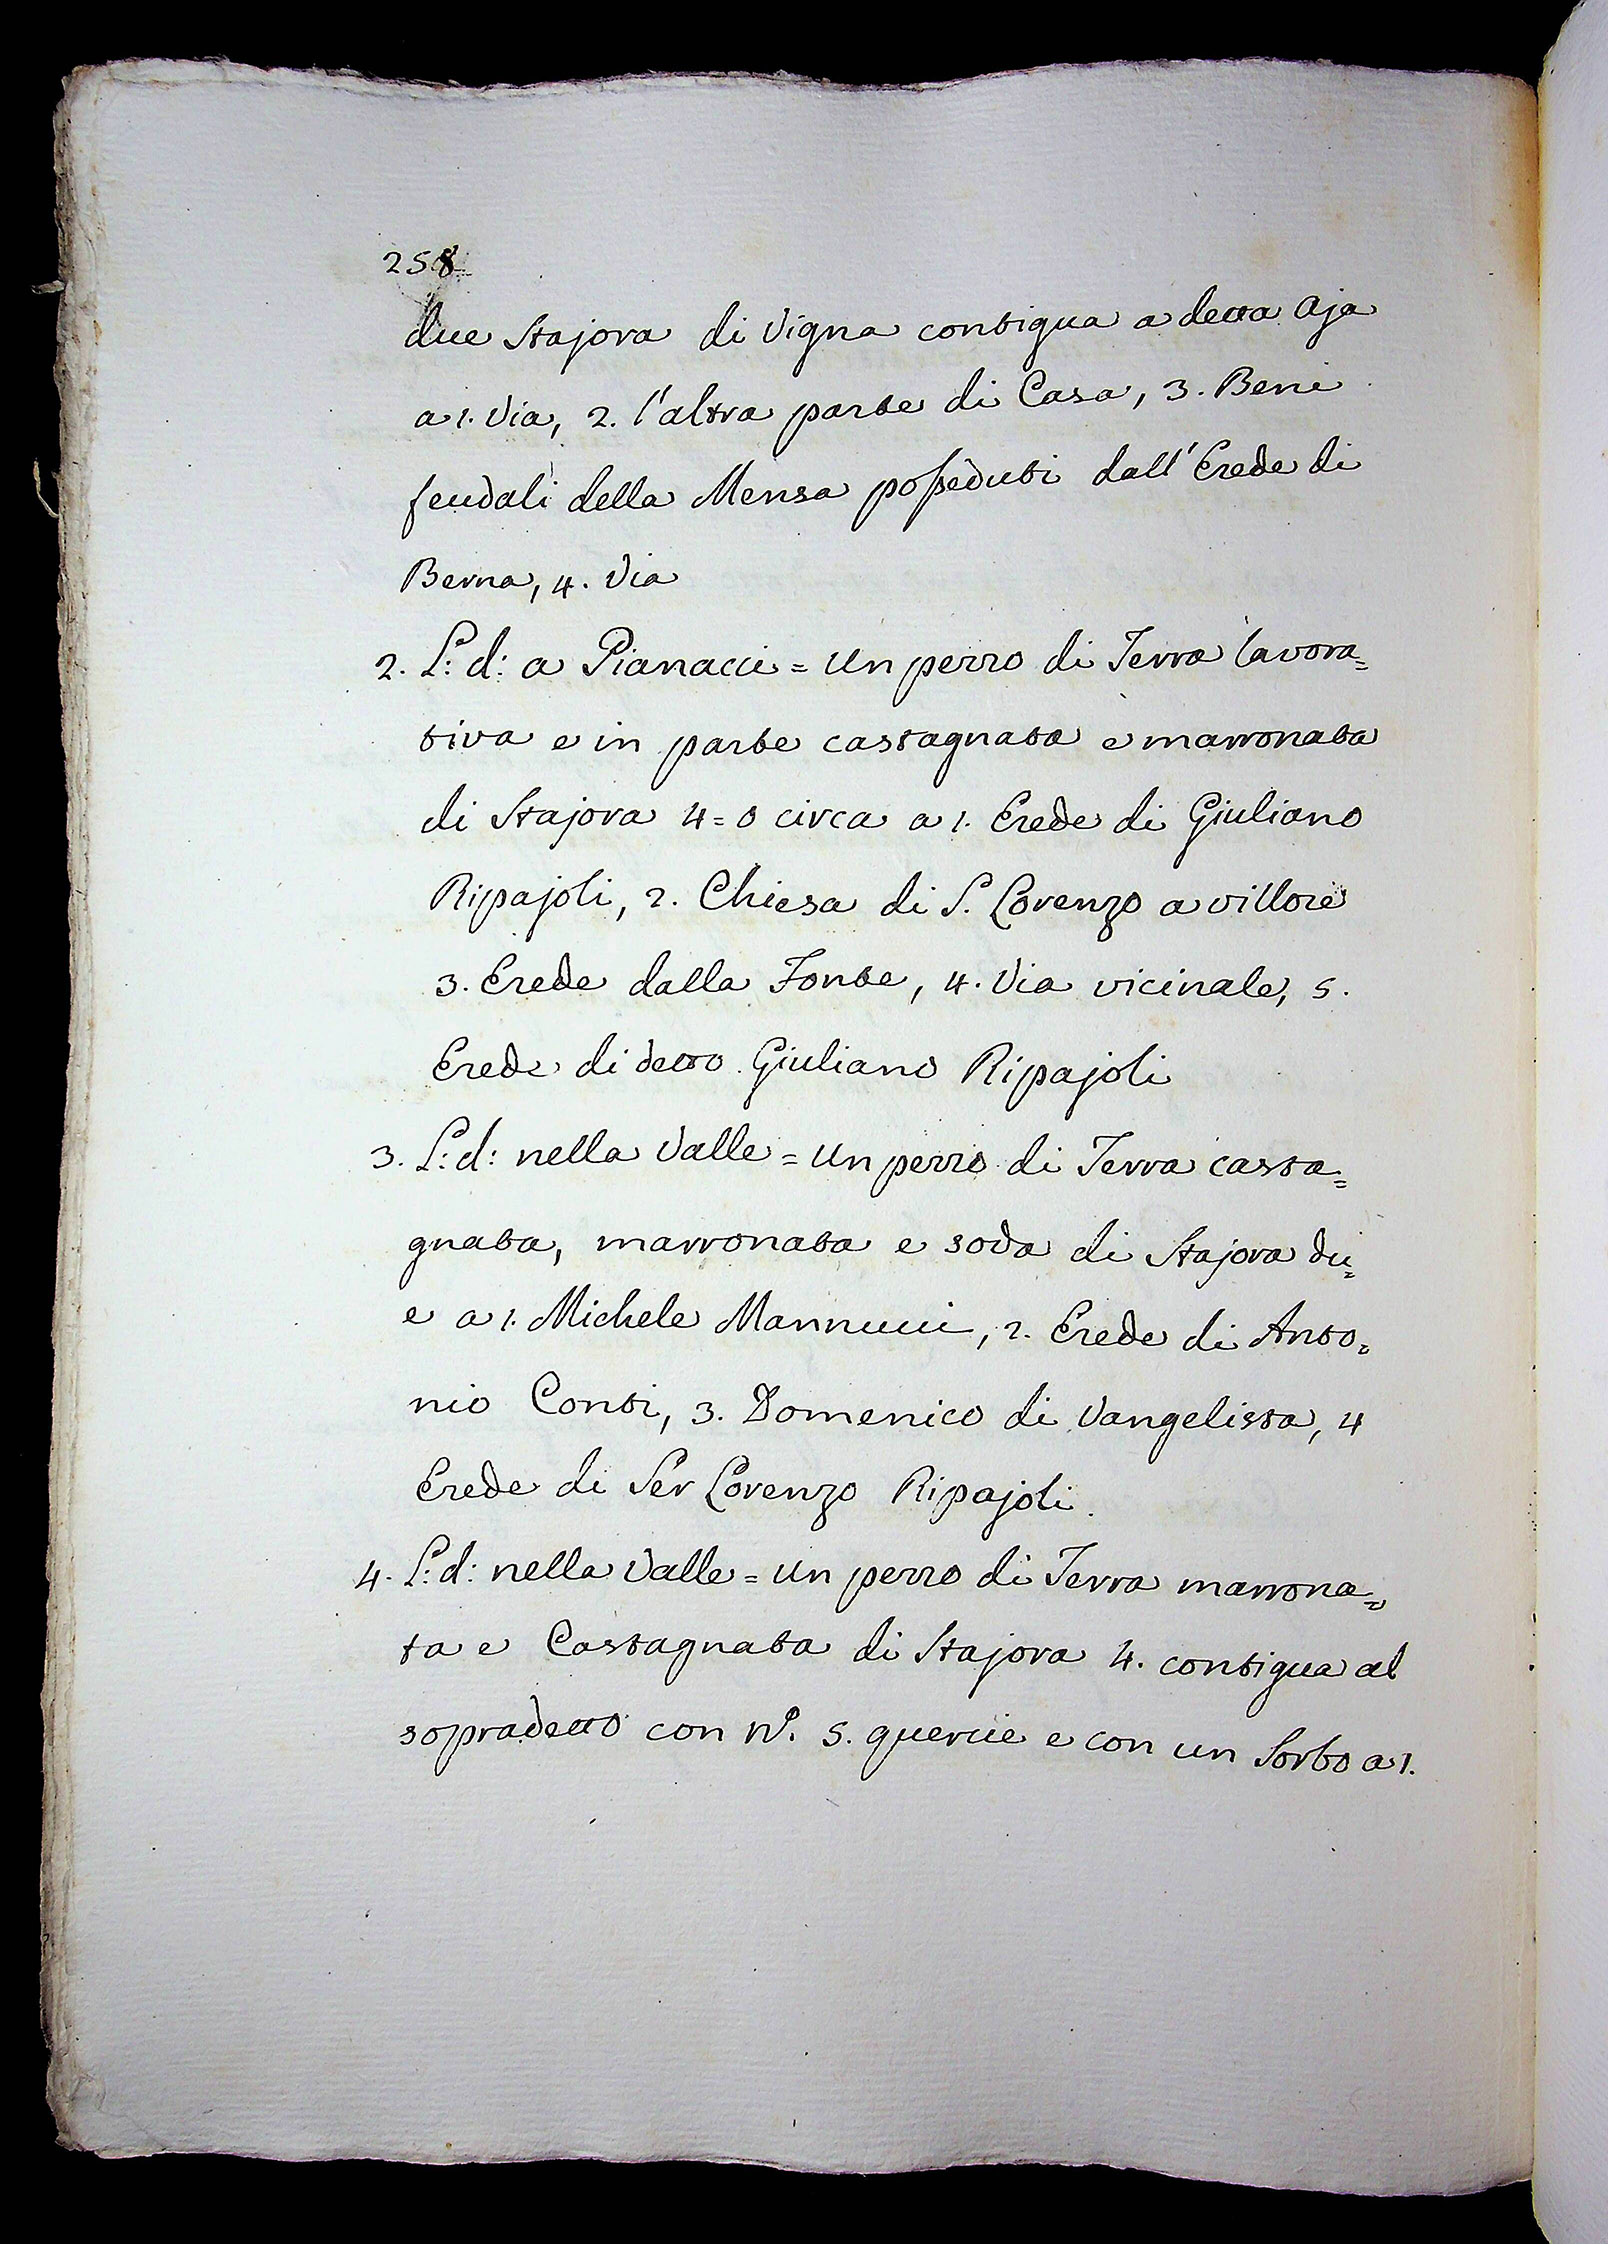 258
due Stajora di Vigna contigua a detta Aja
a 1. Via, 2. l'altra parte di Casa, 3. Beni
feudali della Mensa posseduti dall'Erede di
Berna, 4. Via
2. L: d: a Pianacci = Un pezzo di Terra lavora=
tiva e in parte castagnata e marronata
di Stajora 4=0 circa a 1. Erede di Giuliano
Ripajoli, 2. Chiesa di S. Lorenzo a villore
3. Erede dalla Fonte, 4. Via vicinale, 5.
Erede di detto Giuliano Ripajoli
3. L: d: nella Valle = Un pezzo di Terra casta=
gnata, marronata e soda di Stajora du=
e a 1. Michele Mannucci, 2. Erede di Anto=
nio Conti, 3. Domenico di Vangelista, 4
Erede di Ser Lorenzo Ripajoli.
4. L: d: nella Valle = Un pezzo di Terra marrona=
ta e Castagnata di Stajora 4. contigua al
sopradetto con N°. 5. quercie e con un Sorbo a 1.